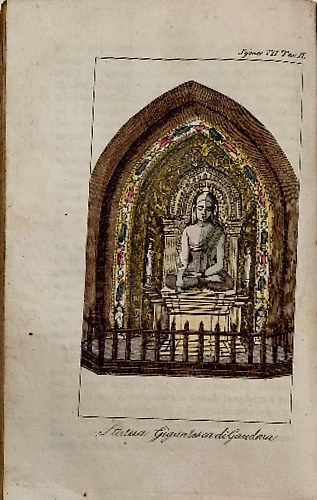 Symes T.II Tav. IV.
Statua Gigantesca di Gaudma